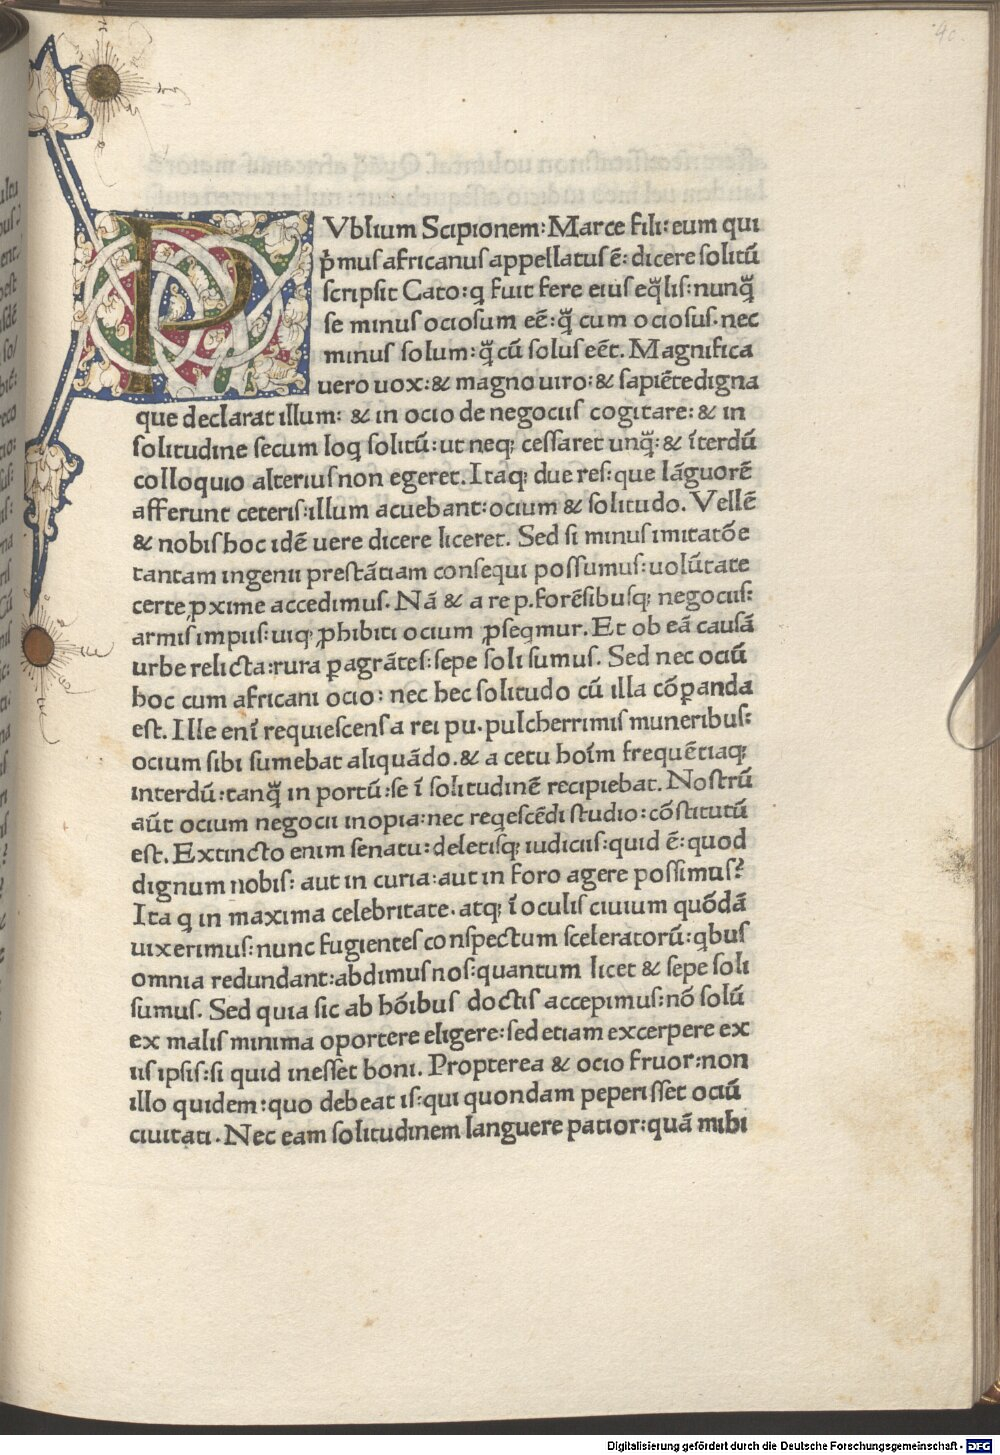 40.
PVblium Scipionem: Marce fili: eum qui
p̃mus africanus appellatus ē: dicere solitū
scripsit Cato: q fuit fere eius eq̃lis: nunq̃
se minus ociosum eē: q̃ cum ociosus. nec
minus solum: q̃ cū solus eēt. Magnifica
uero uox: & magno uiro: & sapiēte digna
que declarat illum: & in ocio de negociis cogitare: & in
solitudine secum loq solitū: ut neq; cessaret unq̃: & īterdū
colloquio alterius non egeret. Itaq; due res: que lāguorē
afferunt ceteris: illum acuebant: ocium & solitudo. Vellē
& nobis hoc idē uere dicere liceret. Sed si minus imitatōe
tantam ingenii prestātiam consequi possumus: uolūtate
certe ꝓxime accedimus. Nā & a re p. forēsibusq; negociis:
armis impiis: uiq; ꝓhibiti ocium ꝓseqmur. Et ob eā causā
urbe relicta: rura ꝑagrātes: sepe soli sumus. Sed nec ociū
hoc cum africani ocio: nec hec solitudo cū illa cōꝑanda
est. Ille enī requiescens a rei pu. pulcherrimis muneribus:
ocium sibi sumebat aliquādo. & a cetu hoīm frequētiaq;
interdū: tanq̃ in portū: se ī solitudinē recipiebat. Nostrū
aūt ocium negocii inopia: nec reqescēdi studio: cōstitutū
est. Extincto enim senatu: deletisq; iudiciis: quid ē: quod
dignum nobis: aut in curia: aut in foro agere possimus?
Ita q in maxima celebritate. atq; ī oculis ciuium quōdā
uixerimus: nunc fugientes conspectum sceleratorū: qbus
omnia redundant: abdimus nos: quantum licet & sepe soli
sumus. Sed quia sic ab hōibus doctis accepimus: nō solū
ex malis minima oportere eligere: sed etiam excerpere ex
iis ipsis: si quid inesset boni. Propterea & ocio fruor: non
illo quidem: quo debeat is: qui quondam peperisset ociū
ciuitati. Nec eam solitudinem languere patior: quā mihi
Digitalisierung gefördert durch die Deutsche Forschungsgemeinschaft - DFG